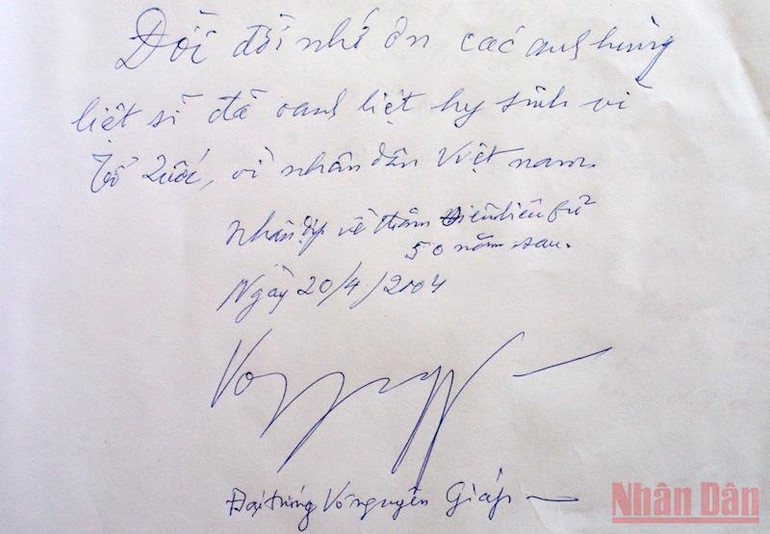 Đời đời nhớ ơn các anh hùng
liệt sĩ đã oanh liệt hy sinh vì
Tổ Quốc, vì nhân dân Việt nam.
Nhân dịp về thăm Điện biên fủ
50 năm sau.
Ngày 20/4/2004
Đại tướng Võ nguyên Giáp
Nhân Dân